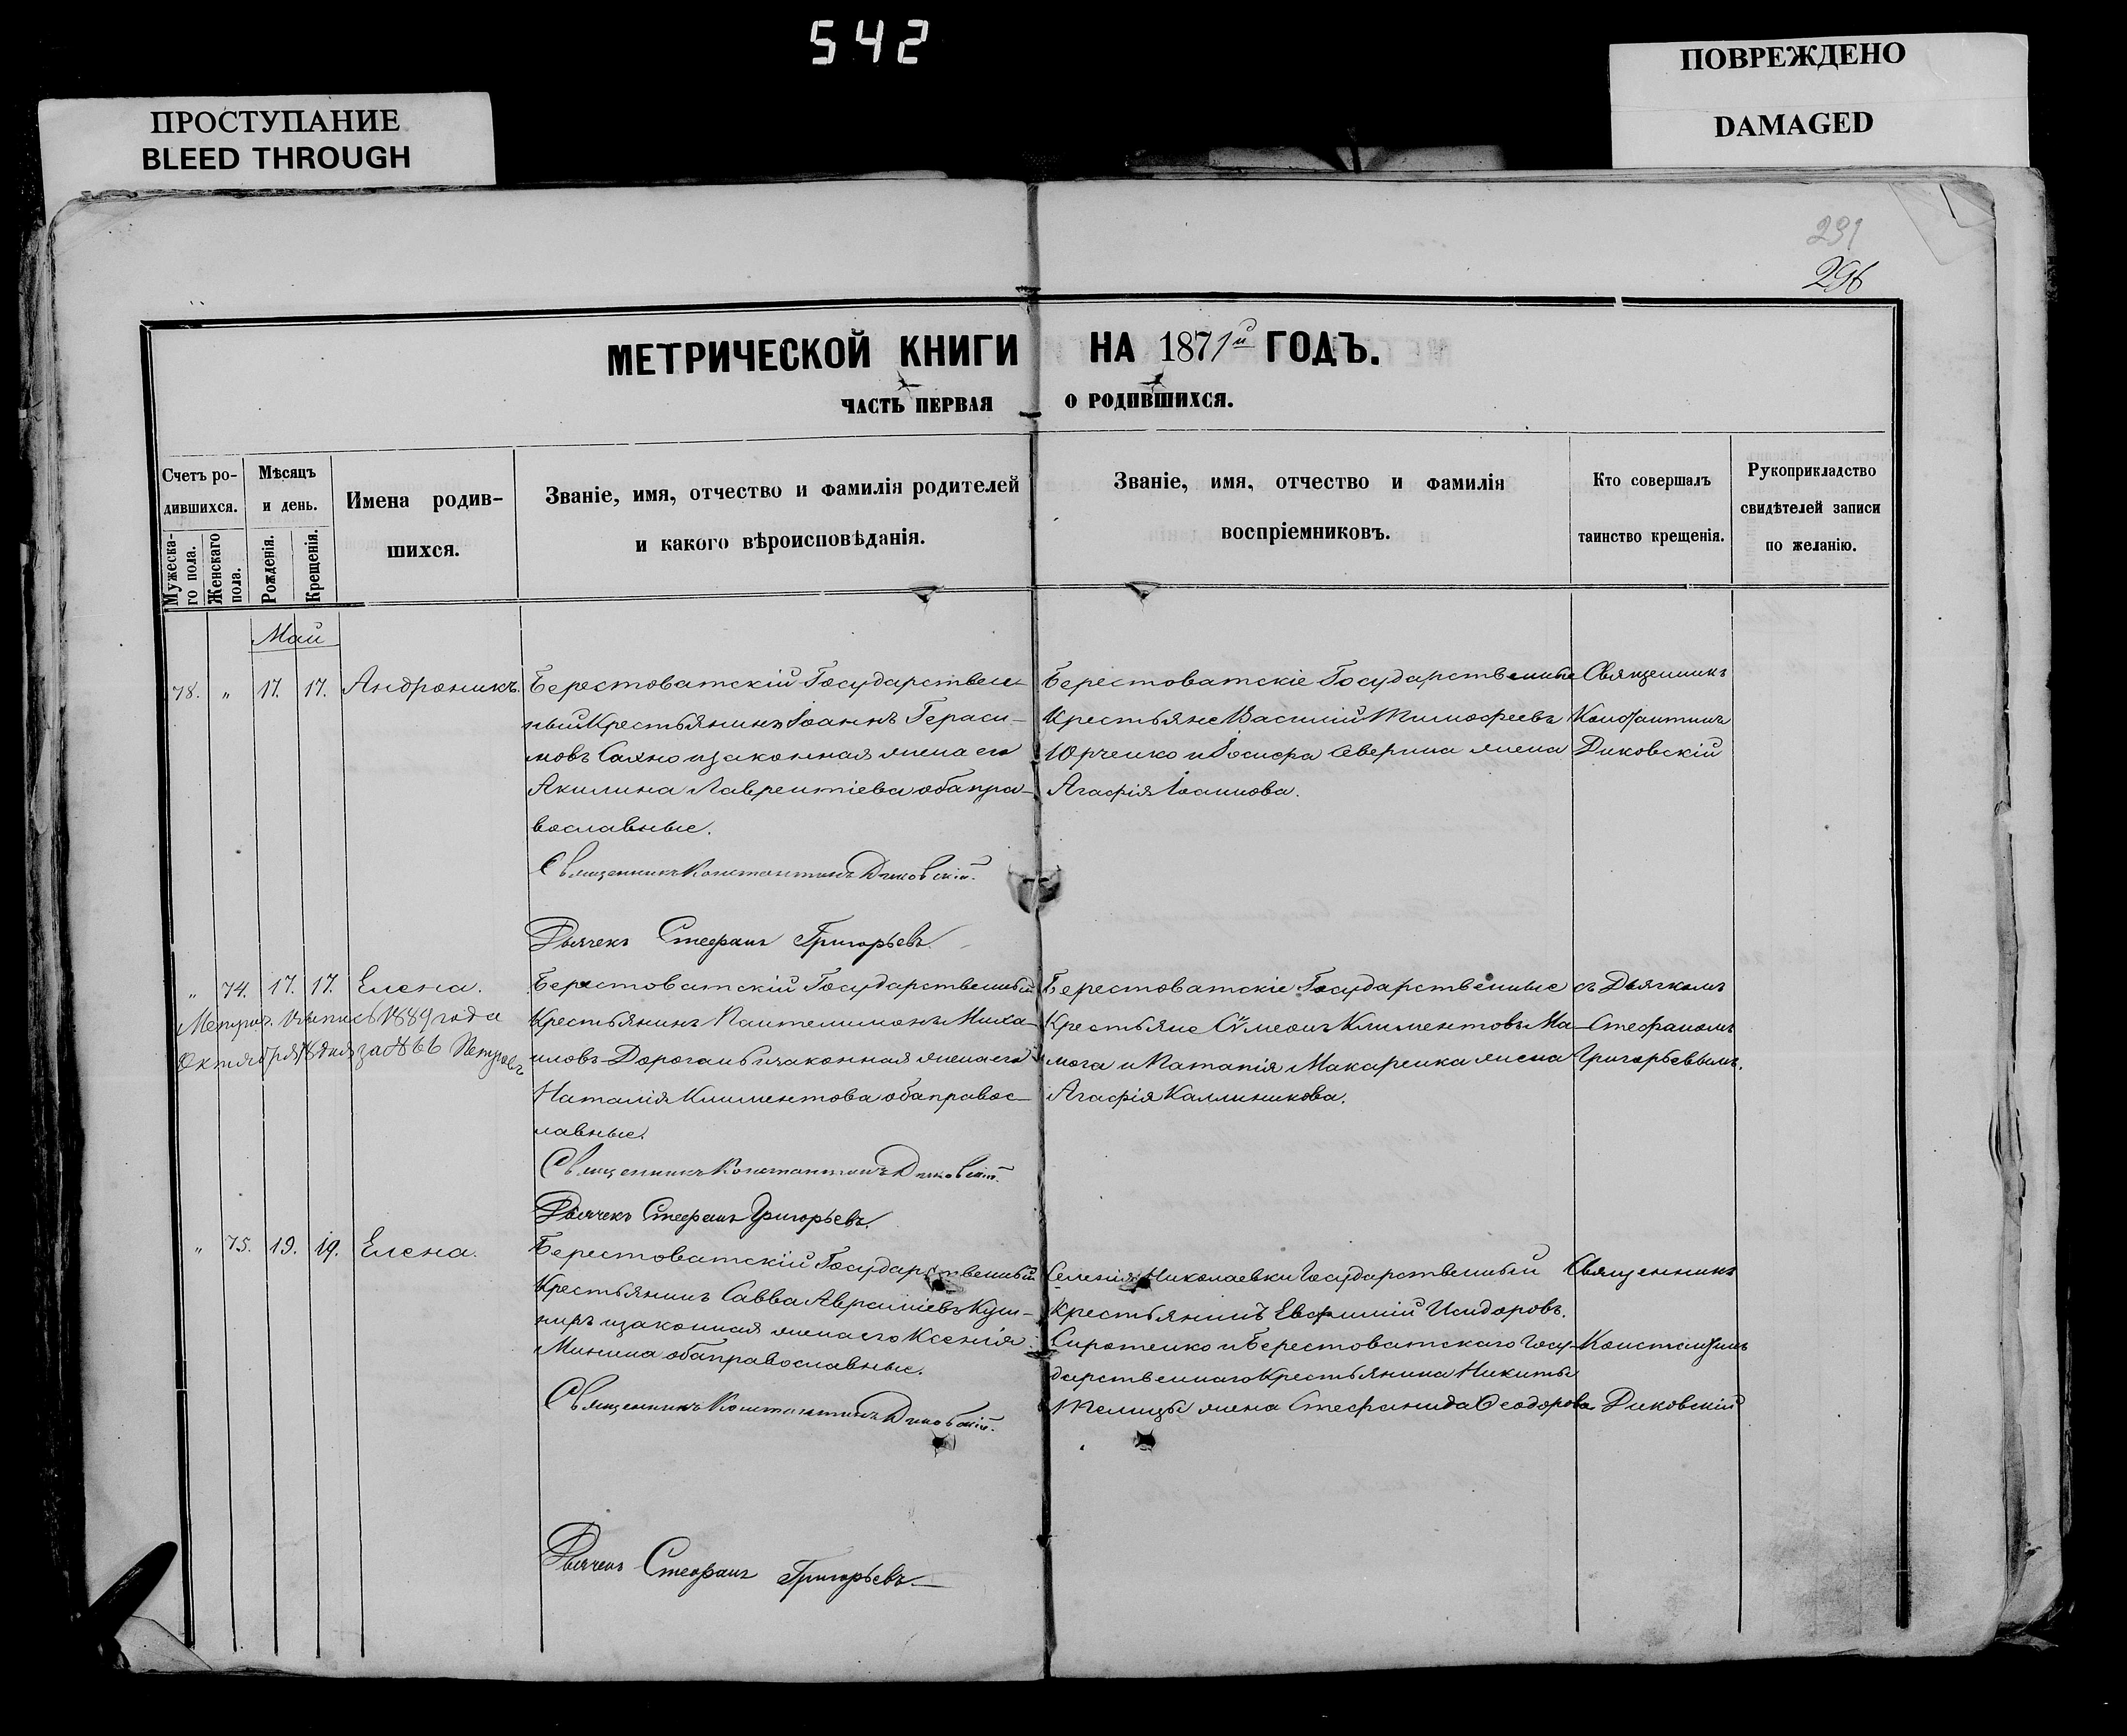 542
ПРОСТУПАНИЕ
BLEED THROUGH
ПОВРЕЖДЕНО
DAMAGED
231
296
МЕТРИЧЕСКОЙ КНИГИ НА 1871й ГОДЪ.
ЧАСТЬ ПЕРВАЯ О РОДИВШИХСЯ.
Счетъ ро-
дившихся.
Мужеска-
го пола.
Женскаго
пола.
Мѣсяцъ
и день.
Рожденія.
Крещенія.
Имена родив-
шихся.
Званіе, имя, отчество и фамилія родителей
и какого вѣроисповѣданія.
Званіе, имя, отчество и фамилія
воспріемниковъ.
Кто совершалъ
таинство крещенія.
Рукоприкладство
свидѣтелей записи
по желанію.
Май
78. " 17. 17. Андроникъ.
Берестоватскій Государствен-
ный Крестьянинъ Іоаннъ Гераси-
мовъ Сахно и законная жена его
Акилина Лаврентіева оба пра-
вославные.
Священникъ Константинъ Диковскій.
Дьячекъ Стефанъ Григорьевъ.
Берестоватскіе Государственные
Крестьяне Василій Тимофеевъ
Юрченко и Іосифа Северина жена
Агафія Іоаннова.
Священникъ
Константинъ
Диковскій
" 74. 17. 17. Елена.
Метрич. выпись 1889 года
Октября дня за №
Берестоватскій Государственный
Крестьянинъ Пантелимонъ Миха-
иловъ Дорогань и законная жена его
Наталія Климентова оба правос-
лавные.
Священникъ Константинъ Диковскій.
Дьячекъ Стефанъ Григорьевъ.
Берестоватскіе Государственные
Крестьяне Сѵмеонъ Климентовъ Ма-
мога и Потапія Макаренка жена
Агафія Каллиникова.
съ Дьячкомъ
Стефаномъ
Григорьевымъ.
" 75. 19. 19. Елена.
Берестоватскій Государственный
Крестьянинъ Савва Аврамiевъ Куш-
ниръ и законная жена его Ксенія
Минина оба православные.
Священникъ Константинъ Диковскій.
Дьячекъ Стефанъ Григорьевъ.
Селенія Николаевки Государственный
Крестьянинъ Евфимій Исидоровъ
Сиротенко и Берестоватскаго Госу-
дарственнаго Крестьянина Никиты
Телицы жена Стефанида Ѳеодорова
Священникъ
Константинъ
Диковскій